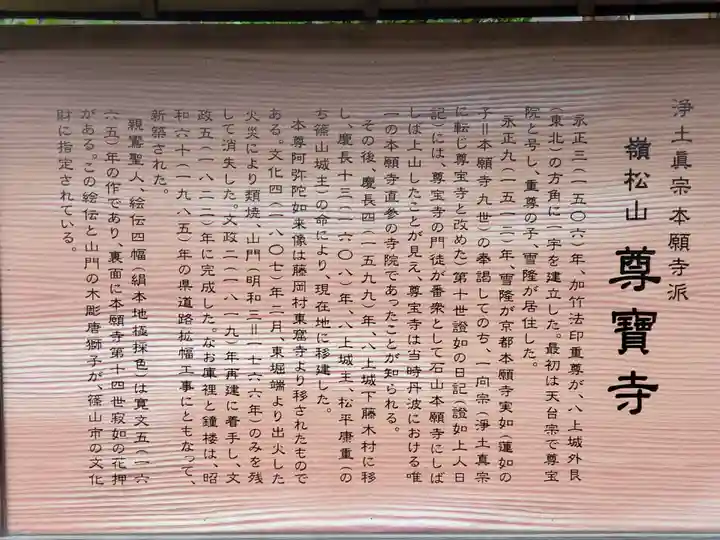 浄土眞宗本願寺派
嶺松山 尊寶寺
永正三(一五〇六)年、加竹法印重尊が、八上城外艮
(東北)の方角に一宇を建立した。最初は天台宗で尊宝
院と号し、重尊の子、雪隆が居住した。
永正九(一五一二)年、雪隆が京都本願寺実如(蓮如の
子=本願寺九世)の奉謁してのち、一向宗(浄土真宗
に転じ尊宝寺と改めた)第十世證如の日記(證如上人日
記)には、尊宝寺の門徒が番衆として石山本願寺にしば
しば上山したことが見え、尊宝寺は当時丹波における唯
一の本願寺直参の寺院であったことが知られる。
その後、慶長四(一五九九)年、八上城下藤木村に移
し、慶長十三(一六〇八)年、八上城主、松平康重(の
ち篠山城主)の命により、現在地に移建した。
本尊阿弥陀如来像は藤岡村東窟寺より移されたもので
ある。文化四(一八〇七)年二月、東堀端より出火した
火災により類焼、山門(明和三=一七六六年)のみを残
して消失した。文政二(一八一九)年再建に着手し、文
政五(一八二二)年に完成した。なお庫裡と鐘楼は、昭
和六十(一九八五)年の県道路拡幅工事にともなって、
新築された。
親鸞聖人、絵伝四幅(絹本地極採色)は寛文五(一六
六五)年の作であり、裏面に本願寺第十四世寂如の花押
がある。この絵伝と山門の木彫唐獅子が、篠山市の文化
財に指定されている。